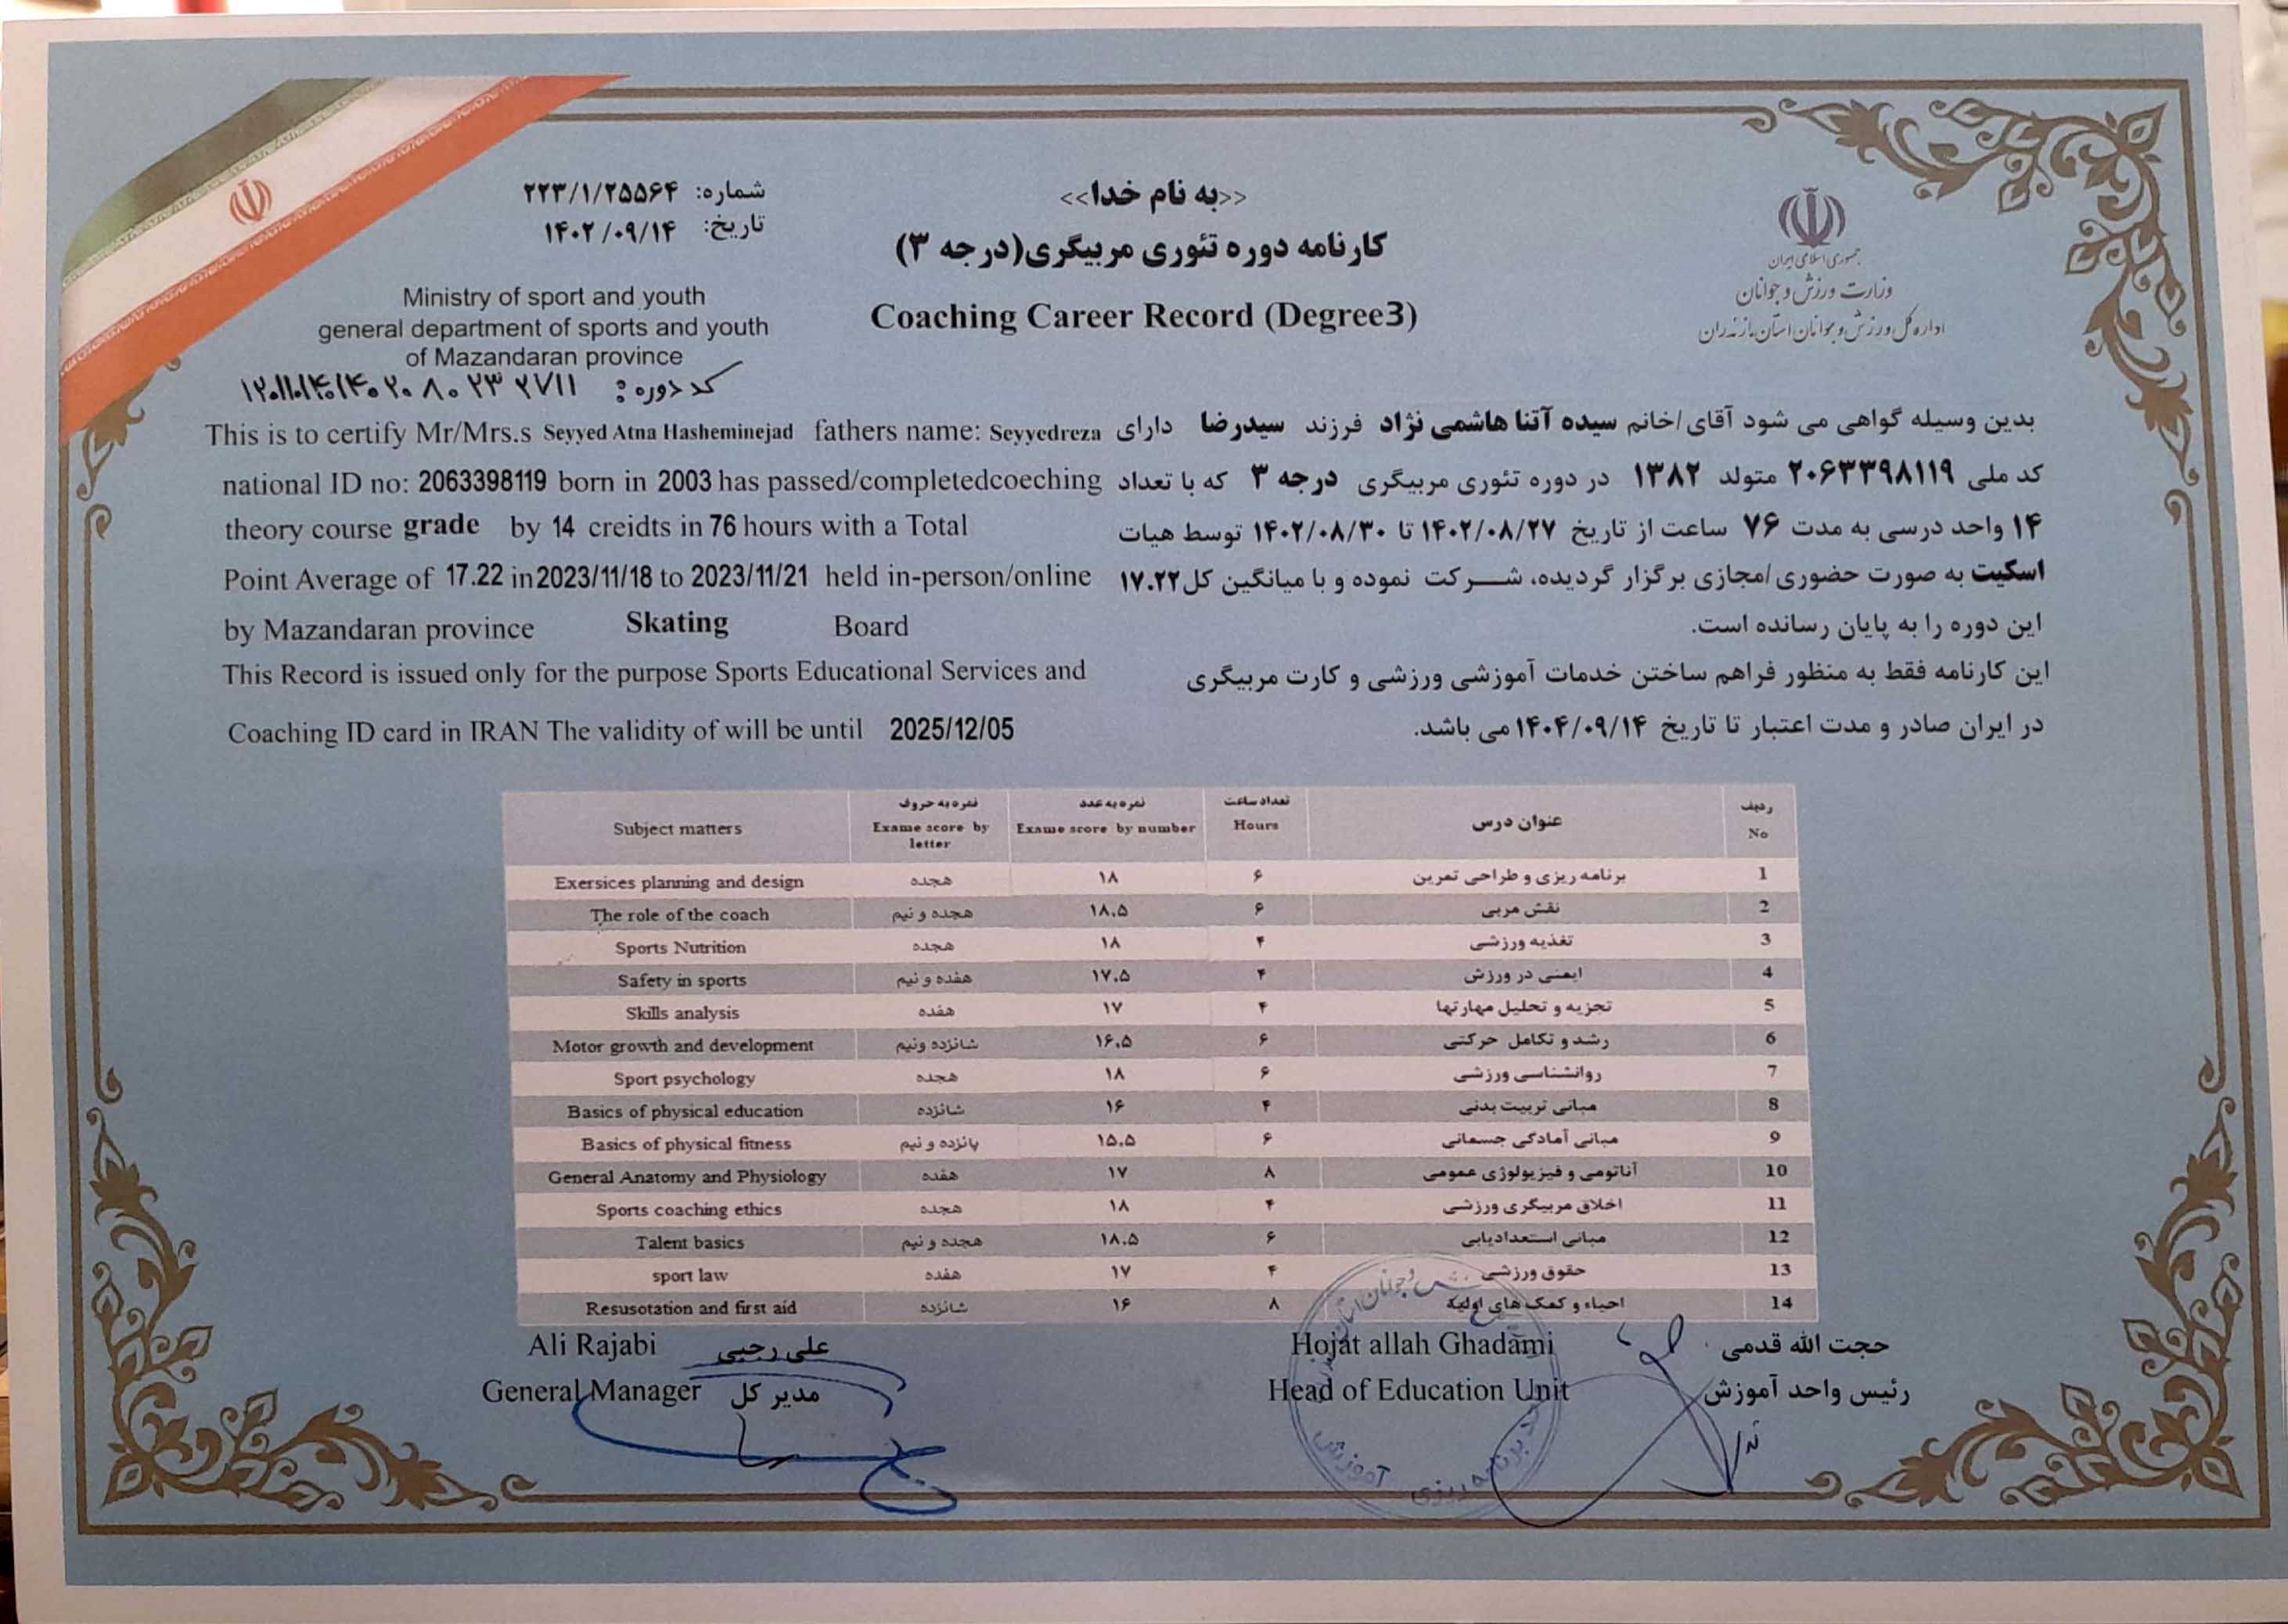 شماره: ۲۲۳/۱/۲۵۵۶۴
تاریخ: ۱۴۰۲/۰۹/۱۴
<<به نام خدا>>
کارنامه دوره تئوری مربیگری(درجه ۳)
Coaching Career Record (Degree3)
جمهوری اسلامی ایران
وزارت ورزش و جوانان
اداره کل ورزش و جوانان استان مازندران
Ministry of sport and youth
general department of sports and youth
of Mazandaran province
کد دوره:
This is to certify Mr/Mrs.s Seyyed Atna Hasheminejad fathers name: Seyyedreza
national ID no: 2063398119 born in 2003 has passed/completedcoeching
theory course grade by 14 creidts in 76 hours with a Total
Point Average of 17.22 in 2023/11/18 to 2023/11/21 held in-person/online
by Mazandaran province Skating Board
This Record is issued only for the purpose Sports Educational Services and
Coaching ID card in IRAN The validity of will be until 2025/12/05
بدین وسیله گواهی می شود آقای/خانم سیده آتنا هاشمی نژاد فرزند سیدرضا دارای
کد ملی ۲۰۶۳۳۹۸۱۱۹ متولد ۱۳۸۲ در دوره تئوری مربیگری درجه ۳ که با تعداد
۱۴ واحد درسی به مدت ۷۶ ساعت از تاریخ ۱۴۰۲/۰۸/۲۷ تا ۱۴۰۲/۰۸/۳۰ توسط هیات
اسکیت به صورت حضوری/مجازی برگزار گردیده، شرکت نموده و با میانگین کل ۱۷.۲۲
این دوره را به پایان رسانده است.
این کارنامه فقط به منظور فراهم ساختن خدمات آموزشی ورزشی و کارت مربیگری
در ایران صادر و مدت اعتبار تا تاریخ ۱۴۰۴/۰۹/۱۴ می باشد.
Subject matters نمره به حروف Exame score by letter نمره به عدد Exame score by number تعداد ساعت Hours عنوان درس ردیف No
Exersices planning and design هجده ۱۸ ۶ برنامه ریزی و طراحی تمرین 1
The role of the coach هجده و نیم ۱۸.۵ ۶ نقش مربی 2
Sports Nutrition هجده ۱۸ ۴ تغذیه ورزشی 3
Safety in sports هفده و نیم ۱۷.۵ ۴ ایمنی در ورزش 4
Skills analysis هفده ۱۷ ۴ تجزیه و تحلیل مهارتها 5
Motor growth and development شانزده ونیم ۱۶.۵ ۶ رشد و تکامل حرکتی 6
Sport psychology هجده ۱۸ ۶ روانشناسی ورزشی 7
Basics of physical education شانزده ۱۶ ۴ مبانی تربیت بدنی 8
Basics of physical fitness پانزده و نیم ۱۵.۵ ۶ مبانی آمادگی جسمانی 9
General Anatomy and Physiology هفده ۱۷ ۸ آناتومی و فیزیولوژی عمومی 10
Sports coaching ethics هجده ۱۸ ۴ اخلاق مربیگری ورزشی 11
Talent basics هجده و نیم ۱۸.۵ ۶ مبانی استعدادیابی 12
sport law هفده ۱۷ ۴ حقوق ورزشی 13
Resusotation and first aid شانزده ۱۶ ۸ احیاء و کمک های اولیه 14
Ali Rajabi علی رجبی
General Manager مدیر کل
Hojat allah Ghadami حجت الله قدمی
Head of Education Unit رئیس واحد آموزش